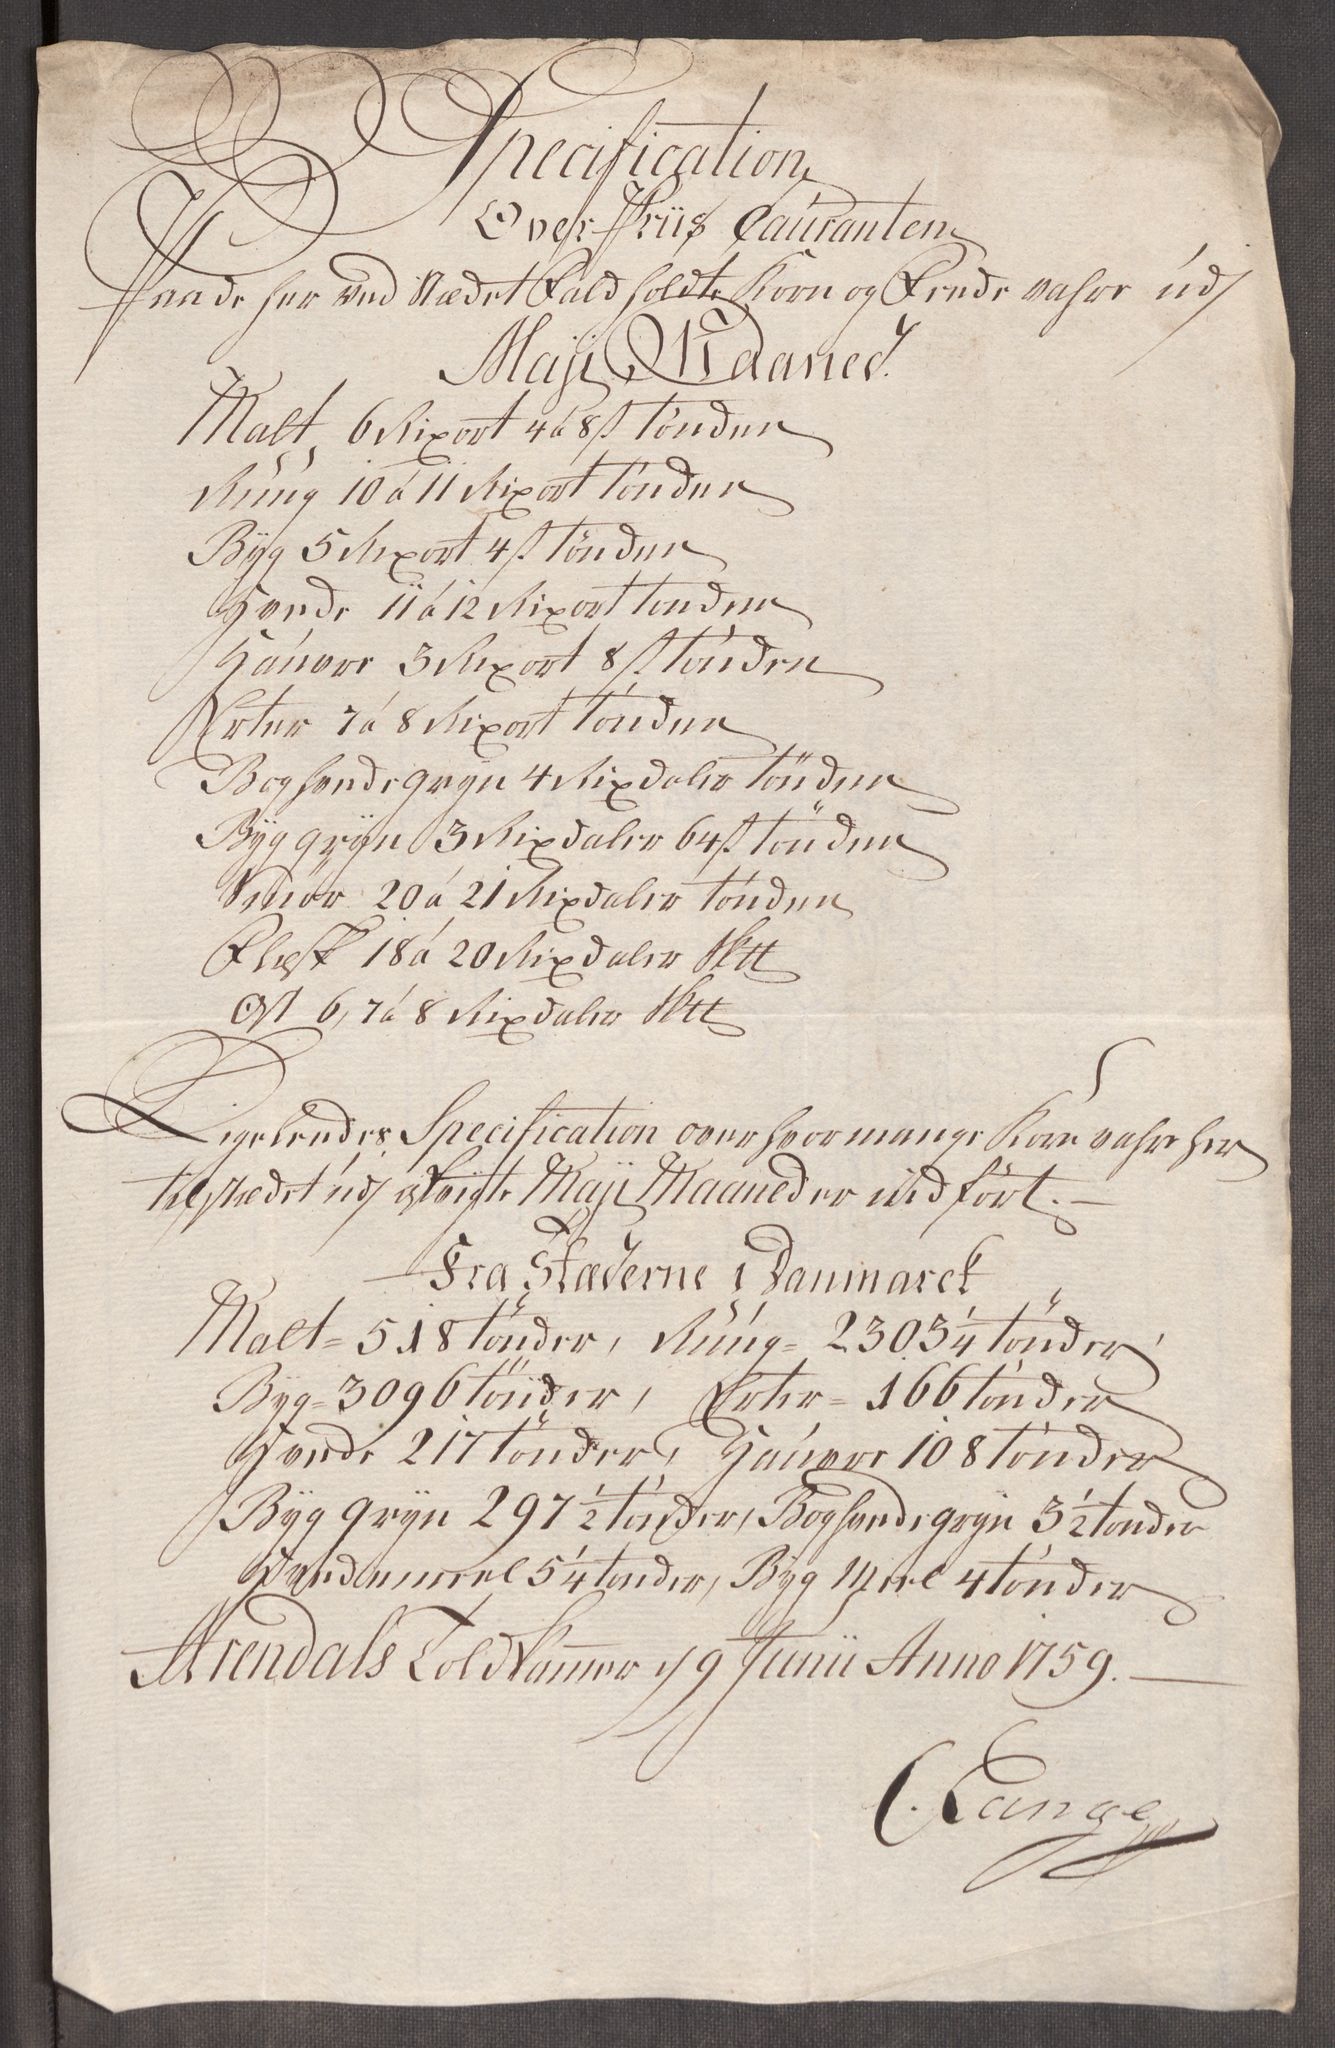 Specification
Over Priis Couranten
Paa de her ved Stædet Fald holdte Korn og Fede vahre udj
Maji Maaned.
Malt, 6 Rixort 4 á 8 s tönden
Rúug 10 á 11 Rixort tönden
Byg 5 Rixort 4 s tönden
Hvede 11 á 12 Rixort tönden
Haúvre 3 Rixort 8 s tönden
Erter 7 á 8 Rixort tönden
Boghvedegryn 4 Rixdaler tönden
Byg gryn 3 Rixdaler 64 s tönden
Smör 20 á 21 Rixdaler tönden
Flesk 18 á 20 Rixdaler Sktt
Ost 6, 7 á 8 Rixdaler Sktt
Ligeledes Specification over hvor mange Korn vahre her
til stædet udj afvigte Maji Maaned er ind fört. —
Fra Stæderne i Danmarck
Malt = 518 tönder, Rúug = 2303 1/4 tönder
Byg = 3096 tönder, Erter = 166 tönder
Hvede 217 tönder, Haúvre 108 tönder
Byg gryn 297 1/2 tönder, Boghvedegryn 3 1/2 tönder
Hvedemeel 5 1/4 tönder, Byg Meel 4 tönder
Arendals Told Kammer d 9 Junii Anno 1759. —
C. Lange